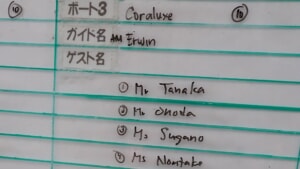 ⑩ ボート3 Coraluxe ⑩
ガイド名 Erwin
ゲスト名
① Mr Tanaka
② Mr Onoda
③ Ms Sugano
④ Ms